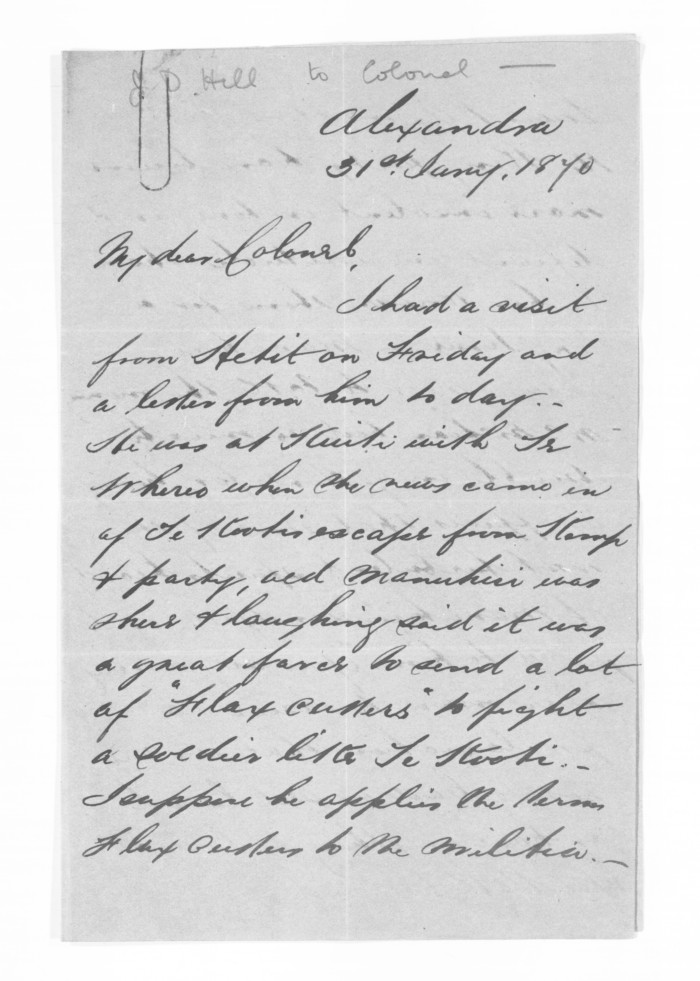 J. P. Hill to Colonel —
Alexandra
31st. Jany. 1870
My dear Colonel,
I had a visit
from Hetit on Friday and
a letter from him to day. -
He was at Kuiti with Te
Whereo when the news came in
of Te Kootis escape from Kemp
& party, old Manuhiri was
there & laughing said it was
a great farce to send a lot
of "Flax cutters" to fight
a soldier like Te Kooti. -
I suppose he applies the term
Flax cutters to the militia. -